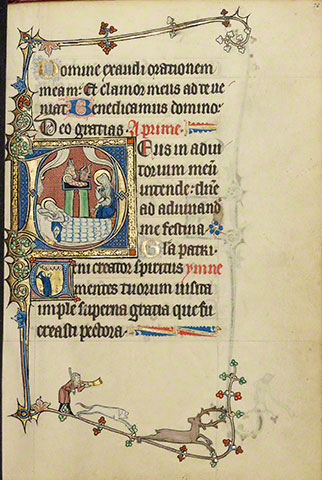 Domine exaudi orationem
meam: Et clamor meus ad te ue
niat. Benedicamus domino:
Deo gratias. A prime.
Deus in adiu
torium meū
intende: dñe
ad adiuuand
me festina.
Gl̃a patri.
Ueni creator spiritus ymne
mentes tuorum uisita
imple superna gratia que tu
creasti pectora.